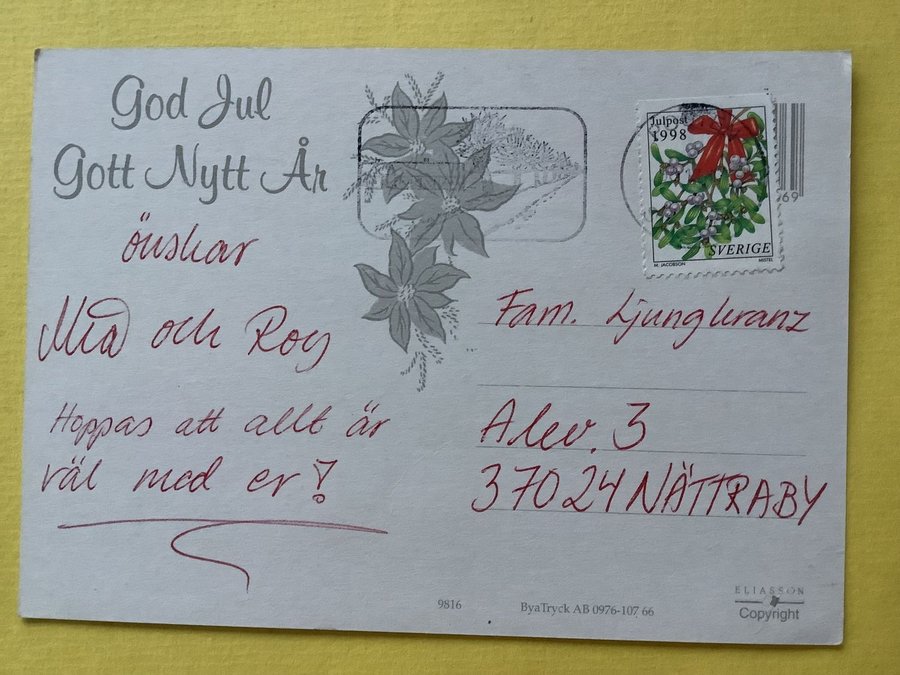 God Jul
Gott Nytt År
önskar
Mia och Roy
Hoppas att allt är
väl med er!
Julpost
1998
SVERIGE
M. JACOBSON MISTEL
69
Fam. Ljungkranz
Alev. 3
37024 NÄTTRABY
9816
ByaTryck AB 0976-107 66
ELIASSON
Copyright